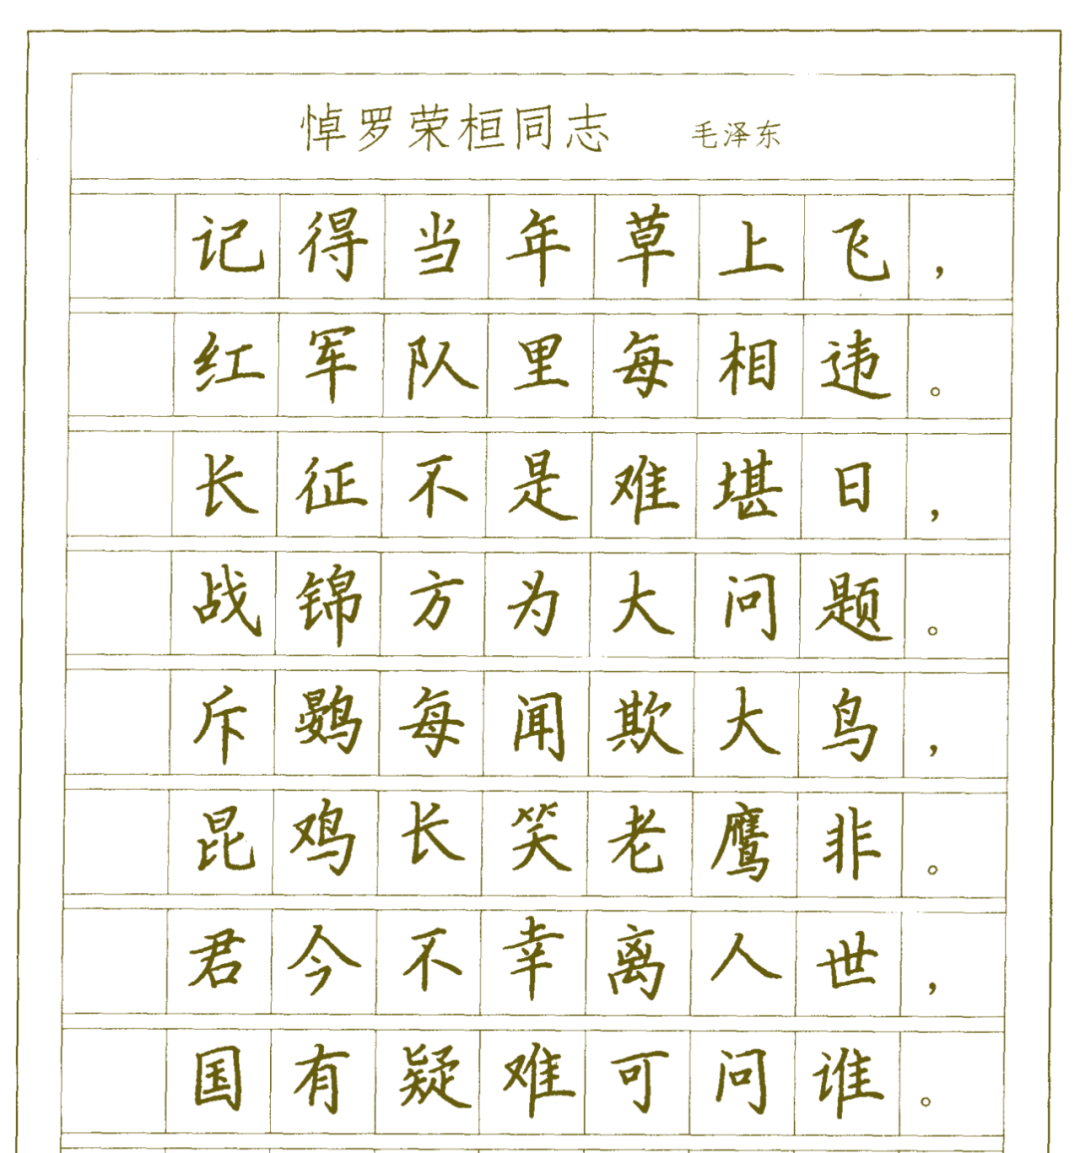 悼罗荣桓同志 毛泽东
记得当年草上飞，
红军队里每相违。
长征不是难堪日，
战锦方为大问题。
斥鷃每闻欺大鸟，
昆鸡长笑老鹰非。
君今不幸离人世，
国有疑难可问谁。